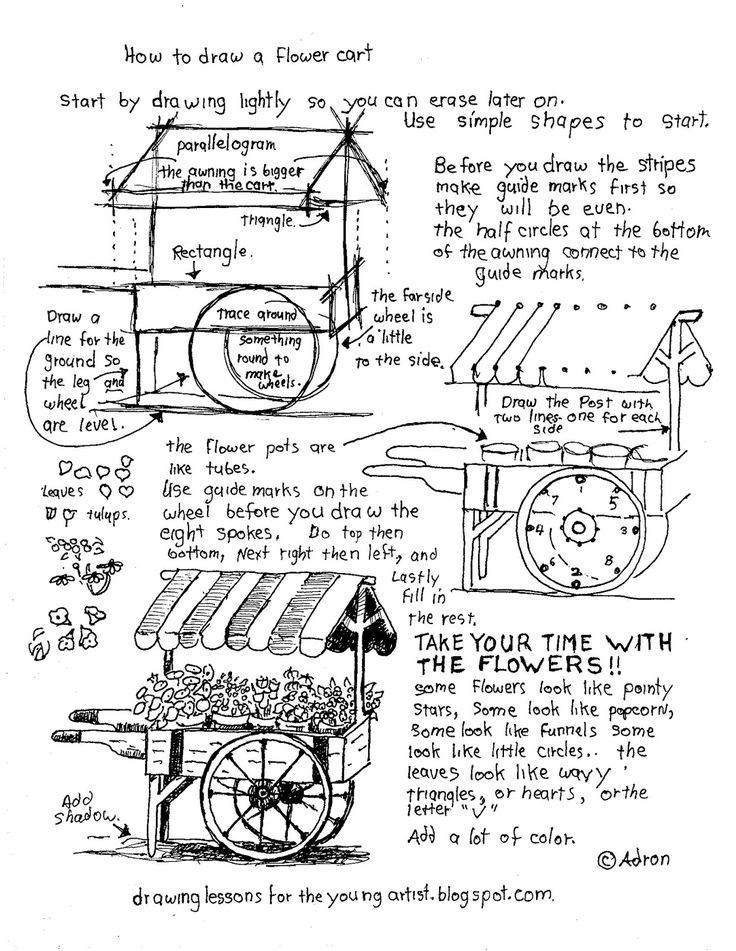 How to draw a Flower cart
Start by drawing lightly so you can erase later on.
Use simple shapes to start.
parallelogram
the awning is bigger
than the cart.
Triangle.
Rectangle.
Before you draw the stripes
make guide marks first so
they will be even.
the half circles at the bottom
of the awning connect to the
guide marks.
Draw a
line for the
ground so
the leg and
wheel
are level.
trace around
something
round to
make
wheels.
the farside
wheel is
a little
to the side.
Draw the Post with
two lines-one for each
side
the flower pots are
like tubes.
Use guide marks on the
wheel before you draw the
eight spokes. Do top then
bottom, Next right then left, and
Lastly
fill in
the rest.
1
7
5
4
3
6
2
8
leaves
tulups.
TAKE YOUR TIME WITH
THE FLOWERS!!
Some Flowers look like pointy
stars, Some look like popcorn,
Some look like funnels some
look like little circles.. the
leaves look like wavy
triangles, or hearts, or the
letter "V"
Add a lot of color.
Add
shadow.
© Adron
drawing lessons for the young artist.blogspot.com.